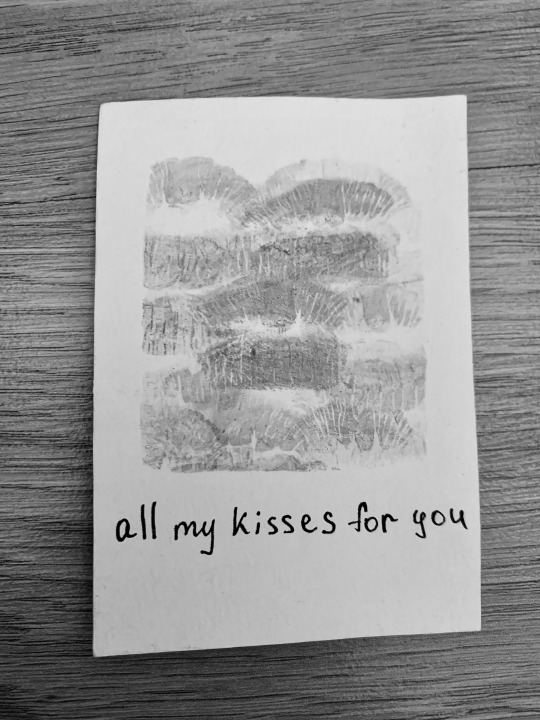 all my kisses for you